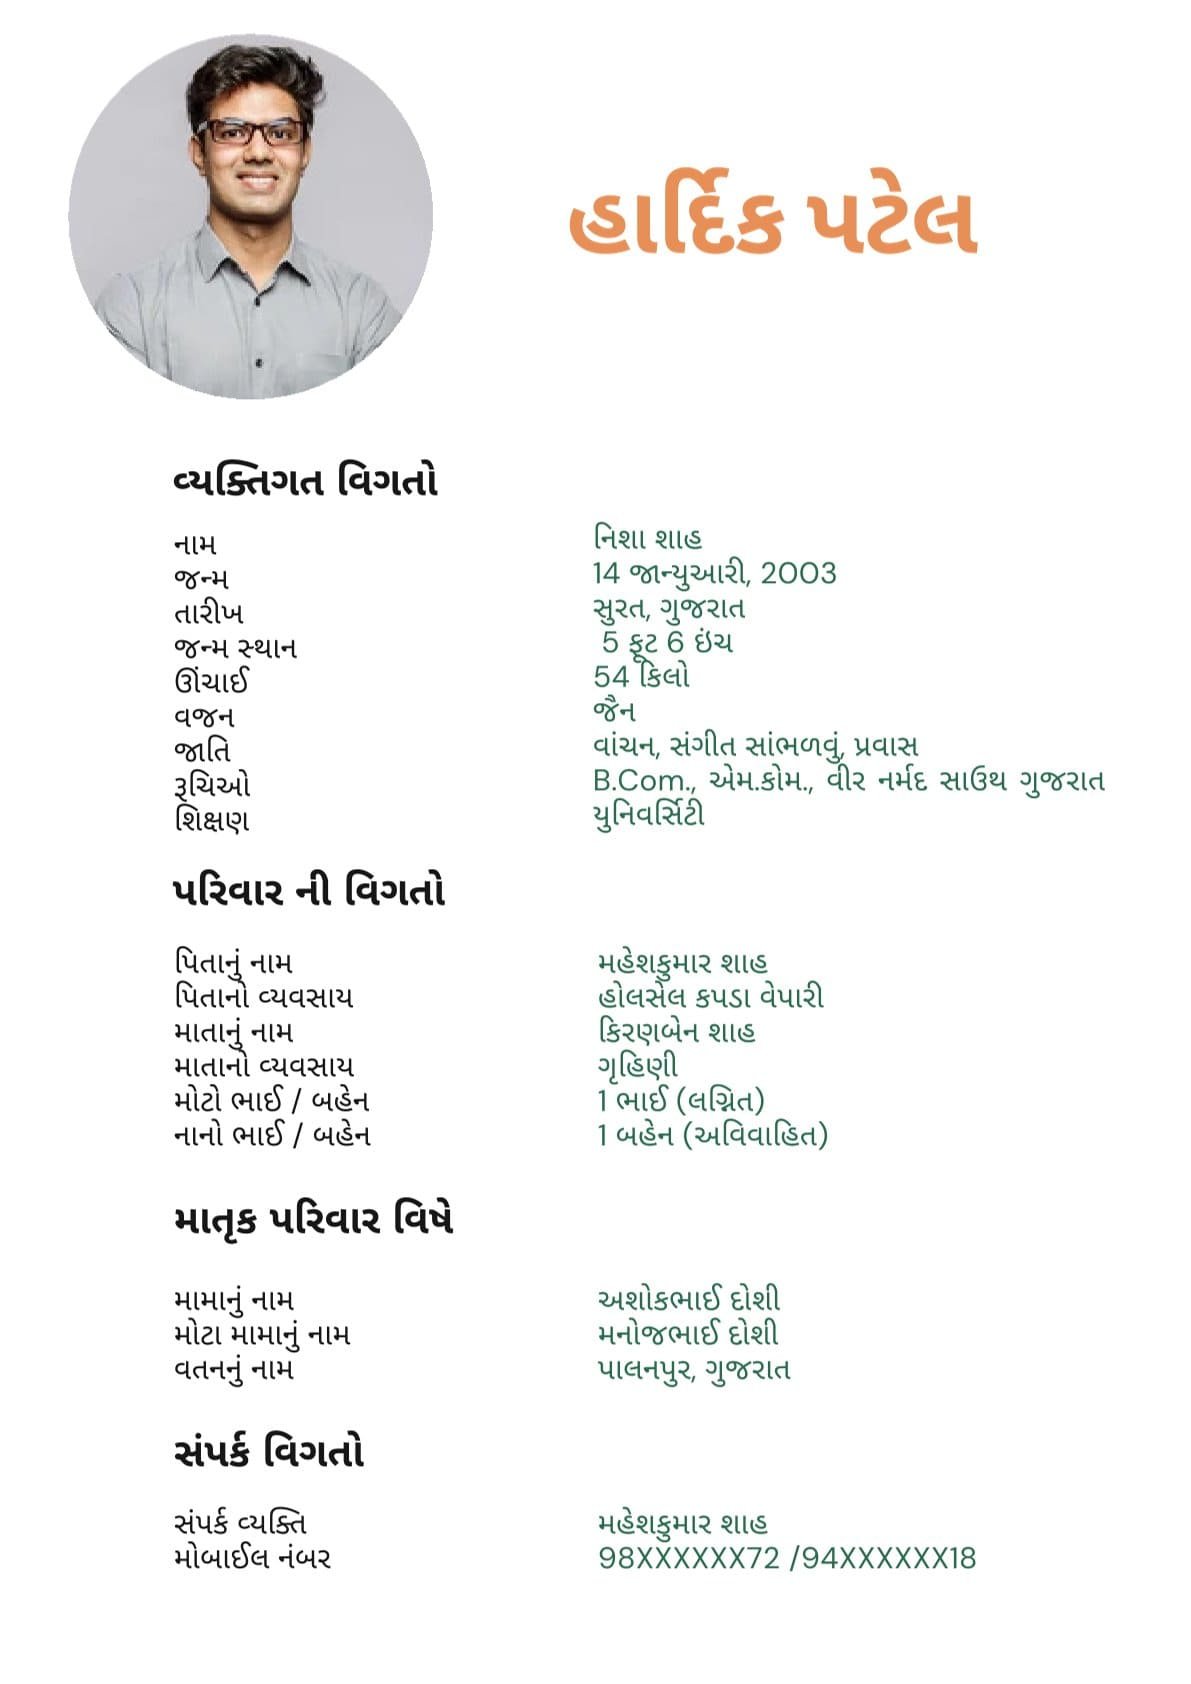 હાર્દિક પટેલ
વ્યક્તિગત વિગતો
નામ નિશા શાહ
જન્મ 14 જાન્યુઆરી, 2003
તારીખ સુરત, ગુજરાત
જન્મ સ્થાન 5 ફૂટ 6 ઇંચ
ઊંચાઈ 54 કિલો
વજન જૈન
જાતિ વાંચન, સંગીત સાંભળવું, પ્રવાસ
રૂચિઓ B.Com., એમ.કોમ., વીર નર્મદ સાઉથ ગુજરાત
શિક્ષણ યુનિવર્સિટી
પરિવાર ની વિગતો
પિતાનું નામ મહેશકુમાર શાહ
પિતાનો વ્યવસાય હોલસેલ કપડા વેપારી
માતાનું નામ કિરણબેન શાહ
માતાનો વ્યવસાય ગૃહિણી
મોટો ભાઈ / બહેન 1 ભાઈ (લગ્નિત)
નાનો ભાઈ / બહેન 1 બહેન (અવિવાહિત)
માતૃક પરિવાર વિષે
મામાનું નામ અશોકભાઈ દોશી
મોટા મામાનું નામ મનોજભાઈ દોશી
વતનનું નામ પાલનપુર, ગુજરાત
સંપર્ક વિગતો
સંપર્ક વ્યક્તિ મહેશકુમાર શાહ
મોબાઈલ નંબર 98XXXXXX72 /94XXXXXX18